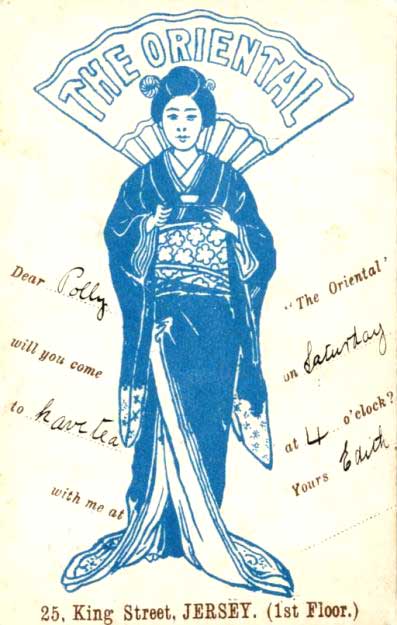 THE ORIENTAL
Dear Polly
will you come
to have tea
with me at
"The Oriental"
on Saturday
at 4 o'clock?
Yours Edith
25, King Street, JERSEY. (1st Floor.)